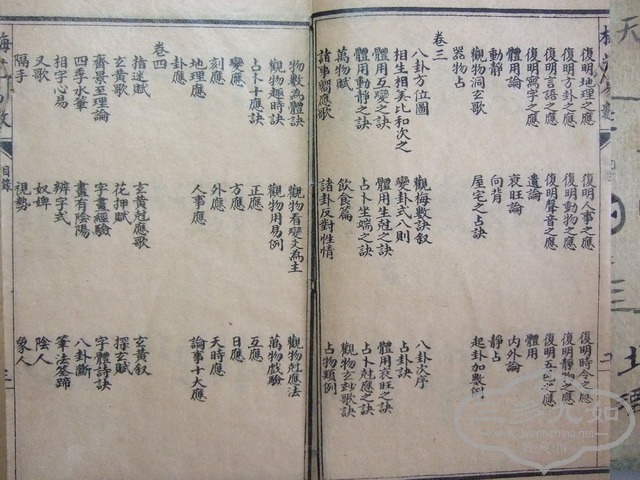 復明地理之應 復明人事之應 復明時令之應
復明方卦之應 復明動物之應 復明靜物之應
復明言語之應 復明聲音之應 復明五色之應
復明寫字之應 遺論 體用
體用論 衰旺論 內外論
動靜 向背 靜占
觀物洞玄歌 屋宅之占訣 起卦加數例
器物占
卷三
八卦方位圖 觀梅數訣叙 八卦次序
相生相尅比和次之 變卦式八則 占卦訣
體用互變之訣 體用生尅之訣 體用衰旺之訣
體用動靜之訣 占卜坐端之訣 占卜尅應之訣
萬物賦 飲食篇 觀物玄玅歌訣
諸事響應歌 諸卦反對性情 占物類例
物數為體訣 觀物看變爻為主 觀物尅應法
觀物趣時訣 觀物用易例 萬物戲驗
占卜十應訣 正應 互應
變應 方應 日應
刻應 外應 天時應
地理應 人事應 論事十大應
卦應
卷四
指迷賦 玄黃尅應歌 玄黃叙
玄黃歌 花押賦 探玄賦
齊景至理論 字畫經驗 字體詩訣
四季水筆 畫有陰陽 八卦斷
相字心易 辨字式 筆法筌蹄
又歌 奴婢 陰人
隔手 視勢 象人
目錄 三